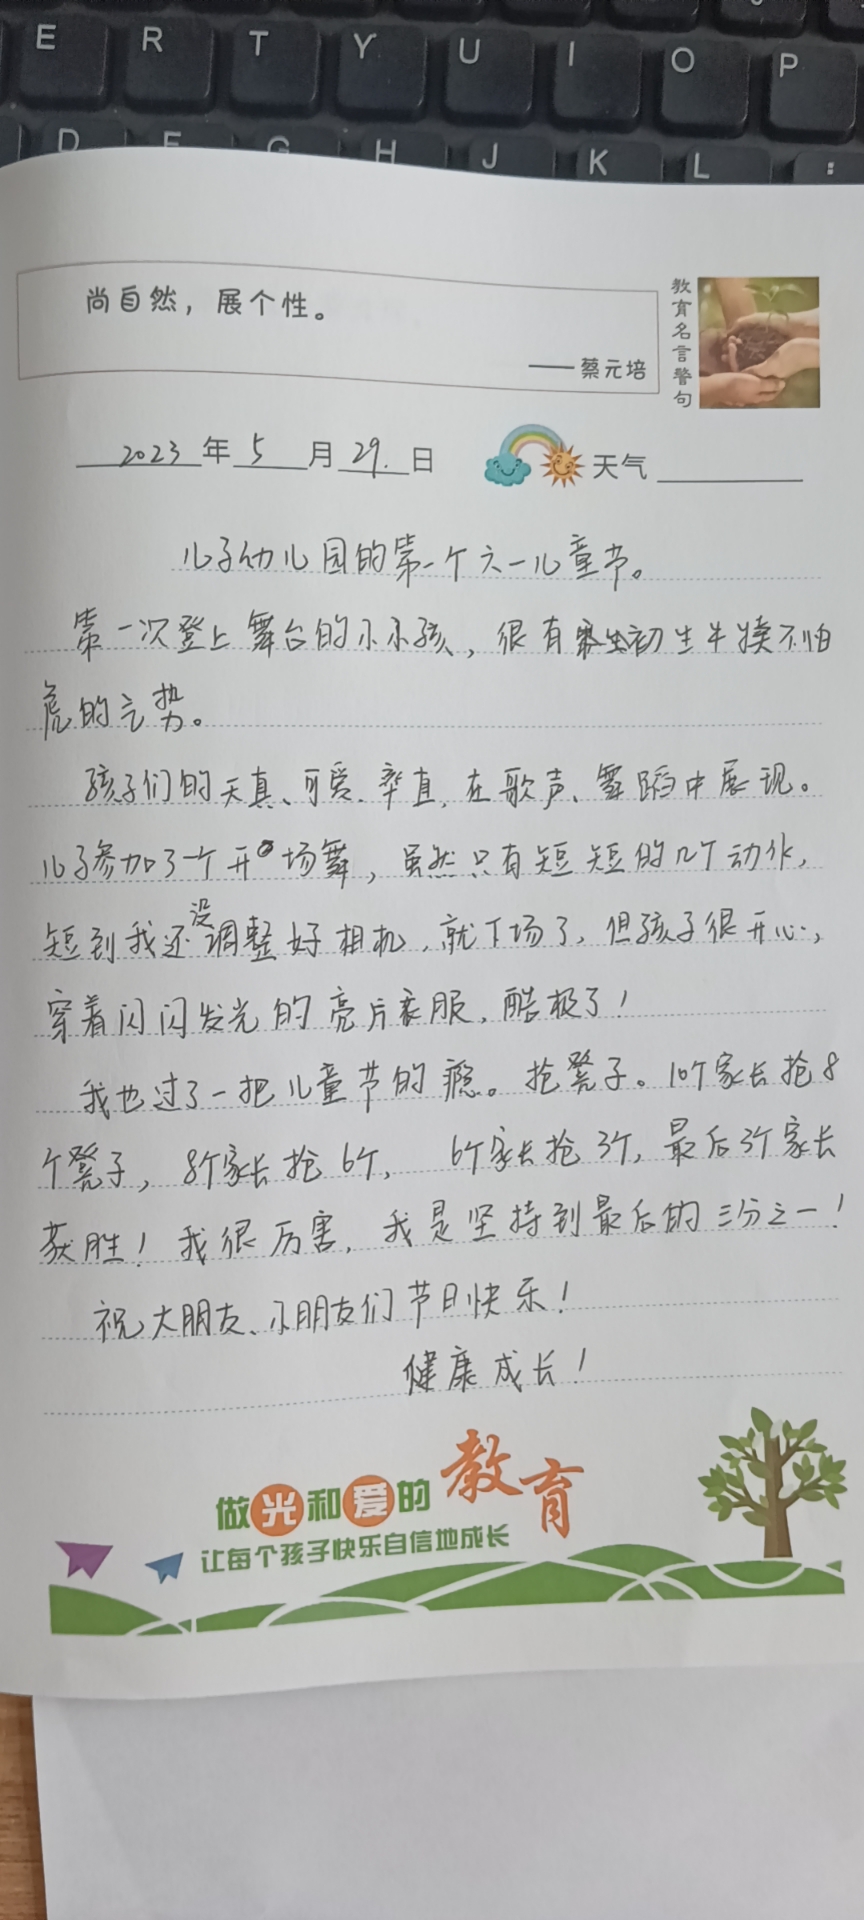 E R T Y U I O P
D F G H J K L :
尚自然，展个性。
——蔡元培
教育名言警句
2023年5月29.日 天气
儿子幼儿园的第一个六一儿童节。
第一次登上舞台的小小孩，很有初生牛犊不怕
虎的气势。
孩子们的天真、可爱、率直，在歌声、舞蹈中展现。
儿子参加了一个开场舞，虽然只有短短的几个动作，
短到我还没调整好相机，就下场了，但孩子很开心，
穿着闪闪发光的亮片衣服，酷极了！
我也过了一把儿童节的瘾。抢凳子。10个家长抢8
个凳子，8个家长抢6个，6个家长抢3个，最后3个家长
获胜！我很厉害，我是坚持到最后的三分之一！
祝大朋友、小朋友们节日快乐！
健康成长！
做光和爱的教育
让每个孩子快乐自信地成长